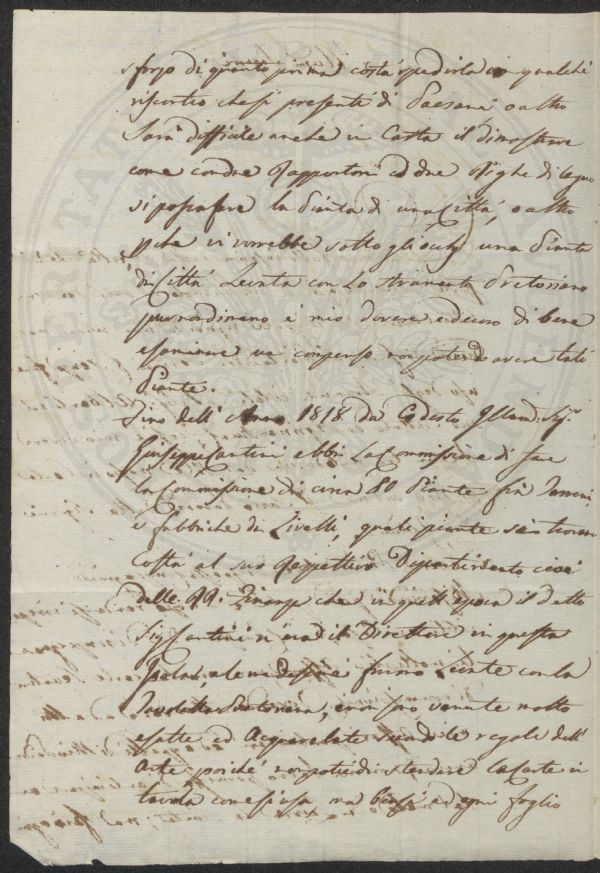 sforzo di quanto prima costà spedirla con qualche
riscontro che si presenti di Paesana o altro
Sarà difficile anche in Carta il dimostrare
come con due Rapportori ed due Righe di legno
si possa fare la Pianta di una Città, o altro
pche vi vorrebbe sotto gli occhi una Pianta
di Città Levata con Lo Strumento Pretoriano
pur nondimeno è mio dovere e decoro di bene
esaminare un compenso non potendo avere tali
Piante.
Fino dell' Anno 1818 da Codesto Illmo. Sigr.
Giuseppe Cantini ebbi La Commissione di fare
la Commissione di circa 80 Piante fra Terreni,
e Fabbriche di Livelli, quali piante si trovano
Costà al suo Respettivo Dipartimento cioè
delle RR. Finanze che in quell'epoca il detto
Sig Cantini n'era il Direttore in questa
e le medesime furno Levate con la
Tavoletta Pretoriana, e non pro venute molto
esatte ed Acquerelate secondo le regole dell'
Arte poiché non potiedi stendere la Carte in
tavola come si usa ma bensì ad ogni foglio